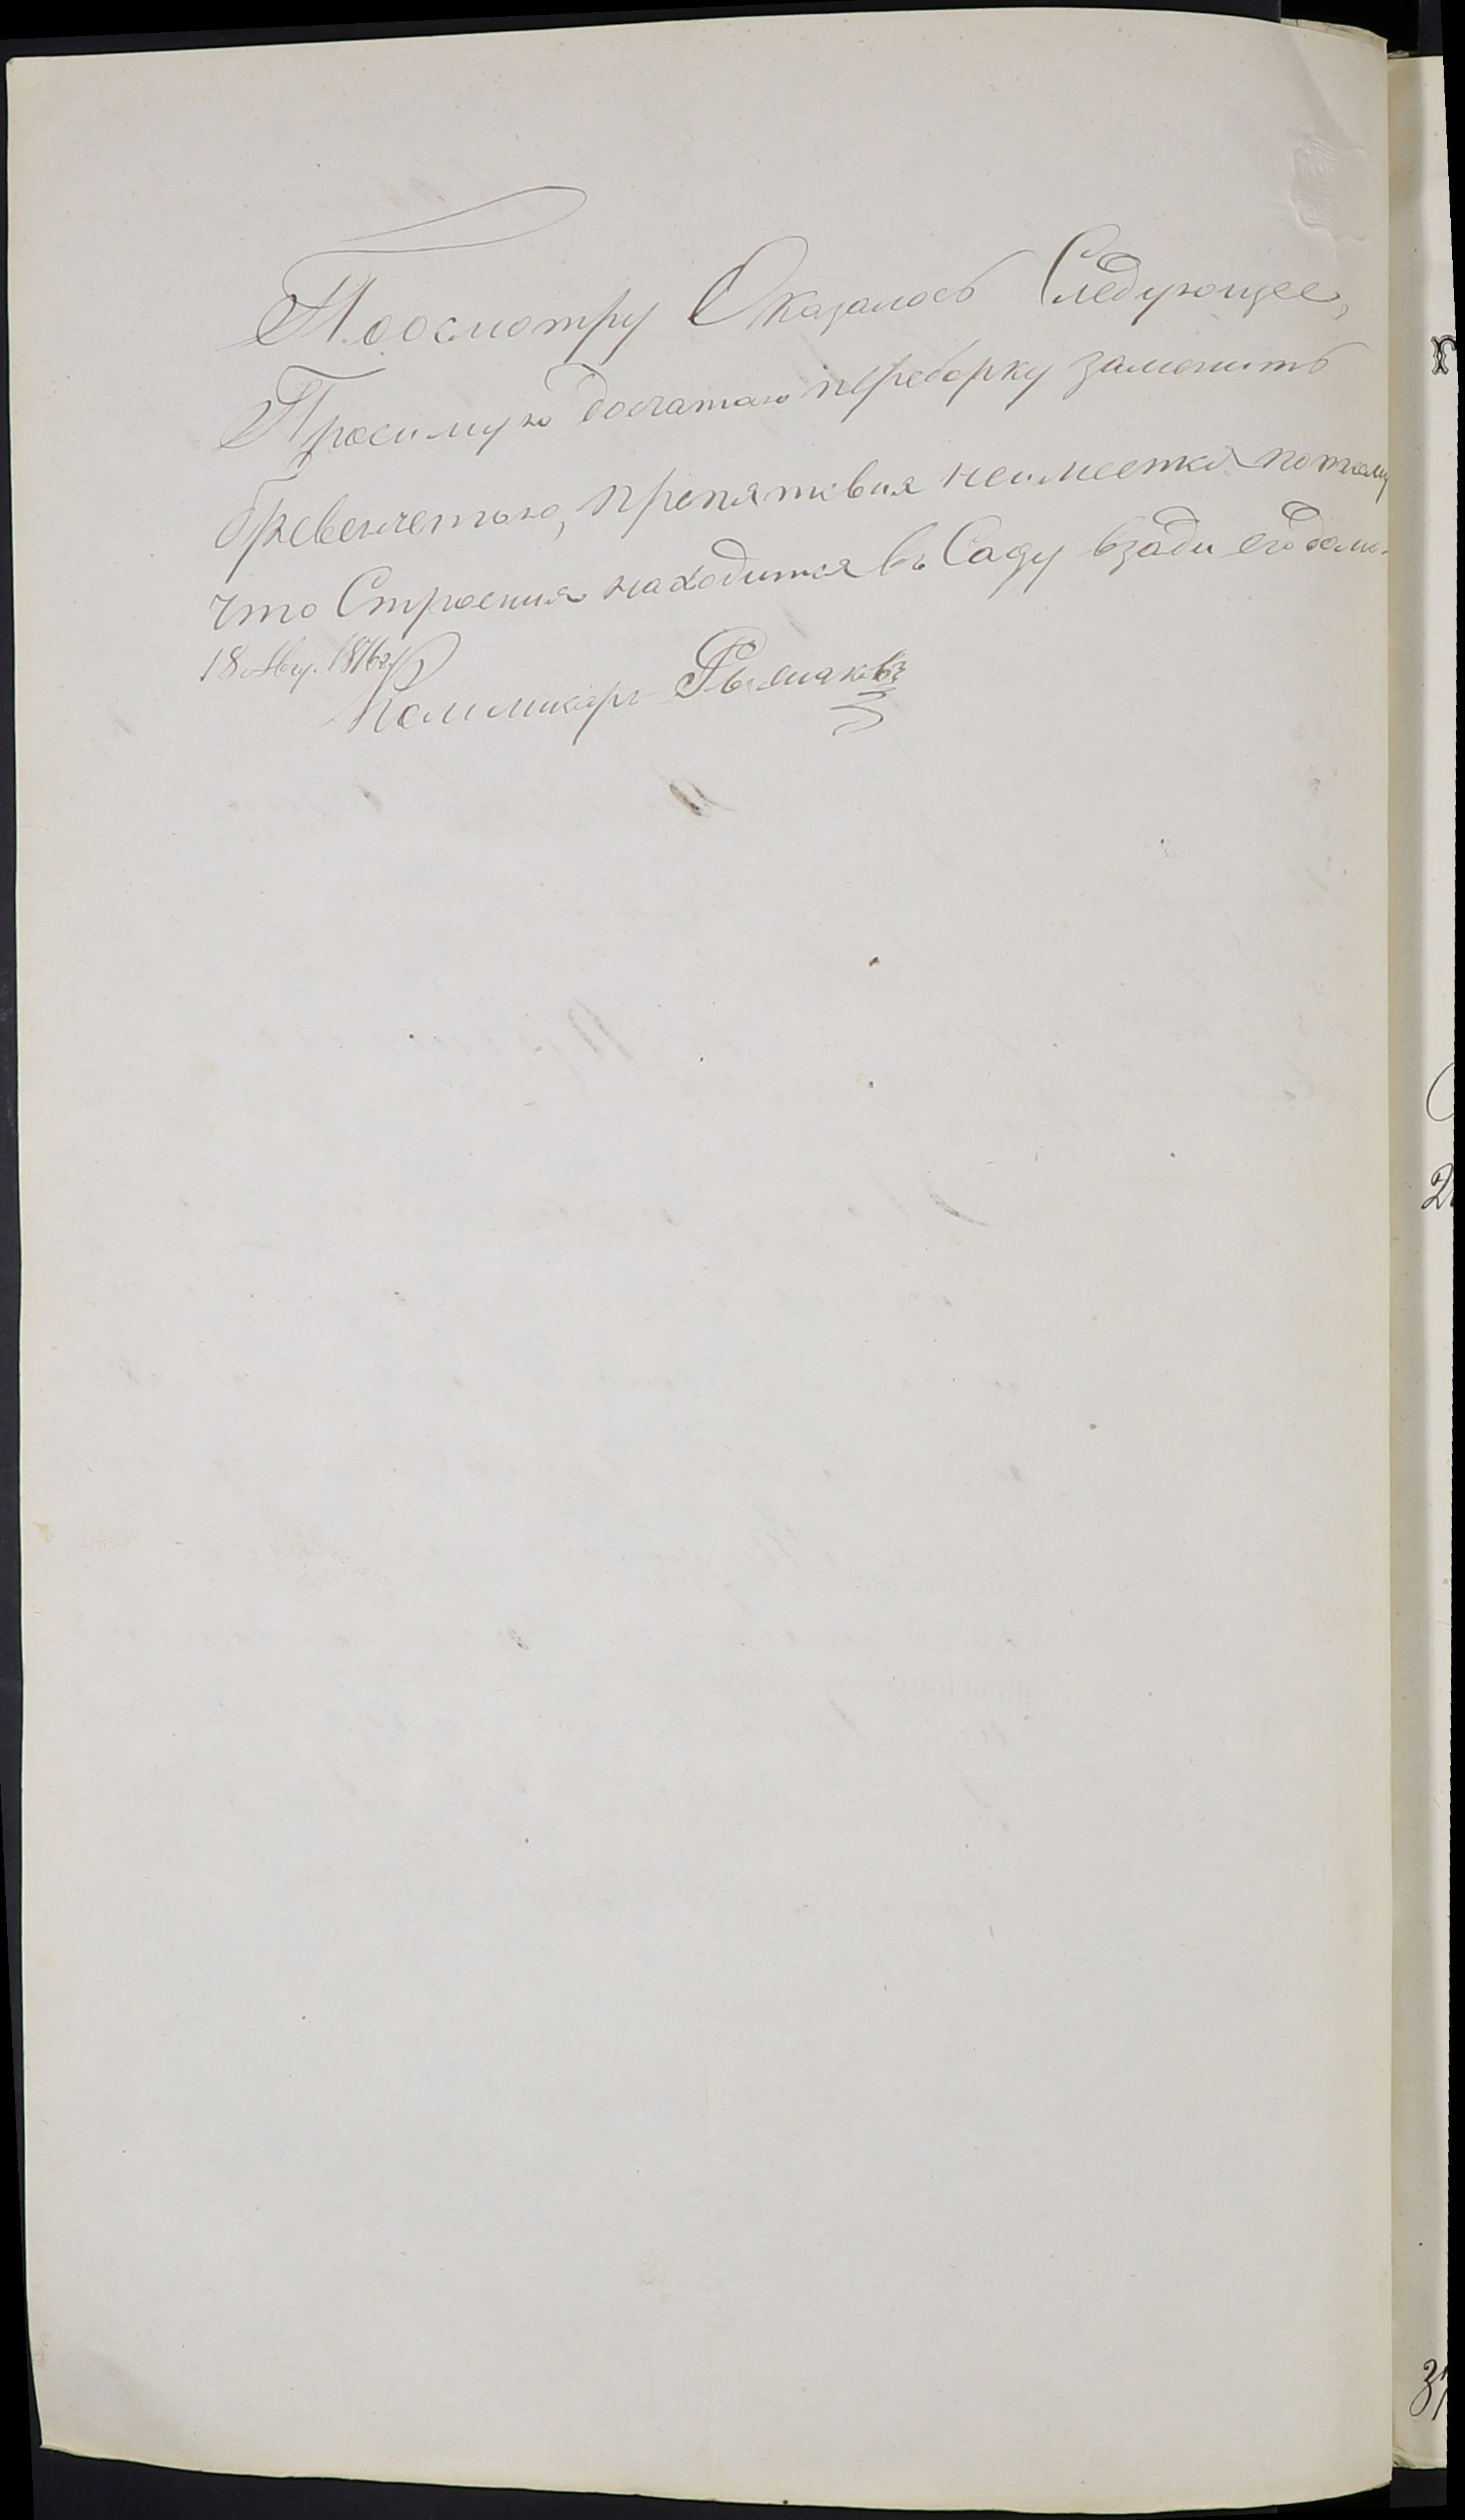 Поосмотру Оказалось Следующее,
Просимую досчатаю переборку заменить
бревенчетою, препятсвия неимеетса потому
что Строения находится въ Саду взади его дома.
18 Авг. 1876 г.
Коммисаръ